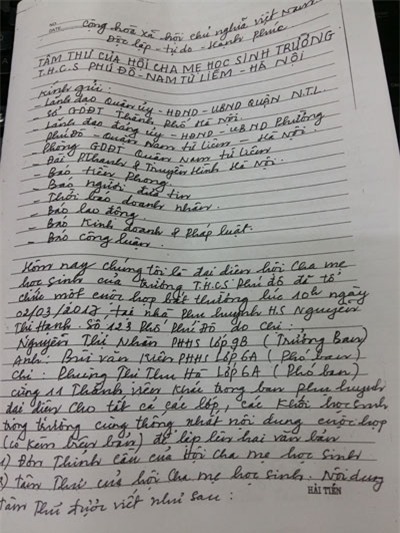 NO.
DATE
Cộng hoà xã hội chủ nghĩa việt Nam
Độc lập - tự do - Hạnh phúc
TÂM THƯ CỦA HỘI CHA MẸ HỌC SINH TRƯỜNG
T.H.C.S PHÚ ĐÔ - NAM TỪ LIÊM - HÀ NỘI
Kính gửi:
- Lãnh đạo Quận ủy - HĐND - UBND QUẬN N.T.L.
- Sở GDĐT Thành Phố Hà Nội.
- Lãnh đạo đảng ủy - HĐND - UBND Phường
Phú Đô - Quận Nam từ Liêm - Hà Nội.
- Phòng GDĐT Quận Nam từ Liêm
- Đài PThanh & Truyền Hình Hà Nội.
- Báo Tiền Phong.
- Báo người đưa tin
- Thời báo doanh nhân.
- Báo lao động.
- Báo Kinh doanh & Pháp luật.
- Báo công luận.
Hôm nay chúng tôi là đại diện hội Cha mẹ
học sinh của trường T.H.C.S Phú đô đã tổ
chức một cuộc họp bất thường lúc 10h ngày
02/03/2017, tại nhà Phụ huynh H.S Nguyễn
Thị Hạnh. Số 123 Phố Phú Đô do Chị:
Nguyễn Thị Nhân PHHS Lớp 9B (Trưởng Ban)
Anh: Bùi văn Kiên PHHS LỚP 6A (Phó ban)
Chị: Phùng Thị Thu Hà LỚP 6A (Phó ban)
cùng 11 Thành viên Khác trong ban phụ huynh
đại diện Cho tất cả các lớp, các Khối học sinh
trong trường cùng thống nhất nội dung cuộc họp
(có kèm biên bản) để lập lên hai văn bản
1) Đơn Thỉnh cầu của Hội Cha mẹ học Sinh
2) tâm Thư của hội Cha mẹ học sinh. Nội dung
tâm Thư được viết như sau:
HẢI TIẾN